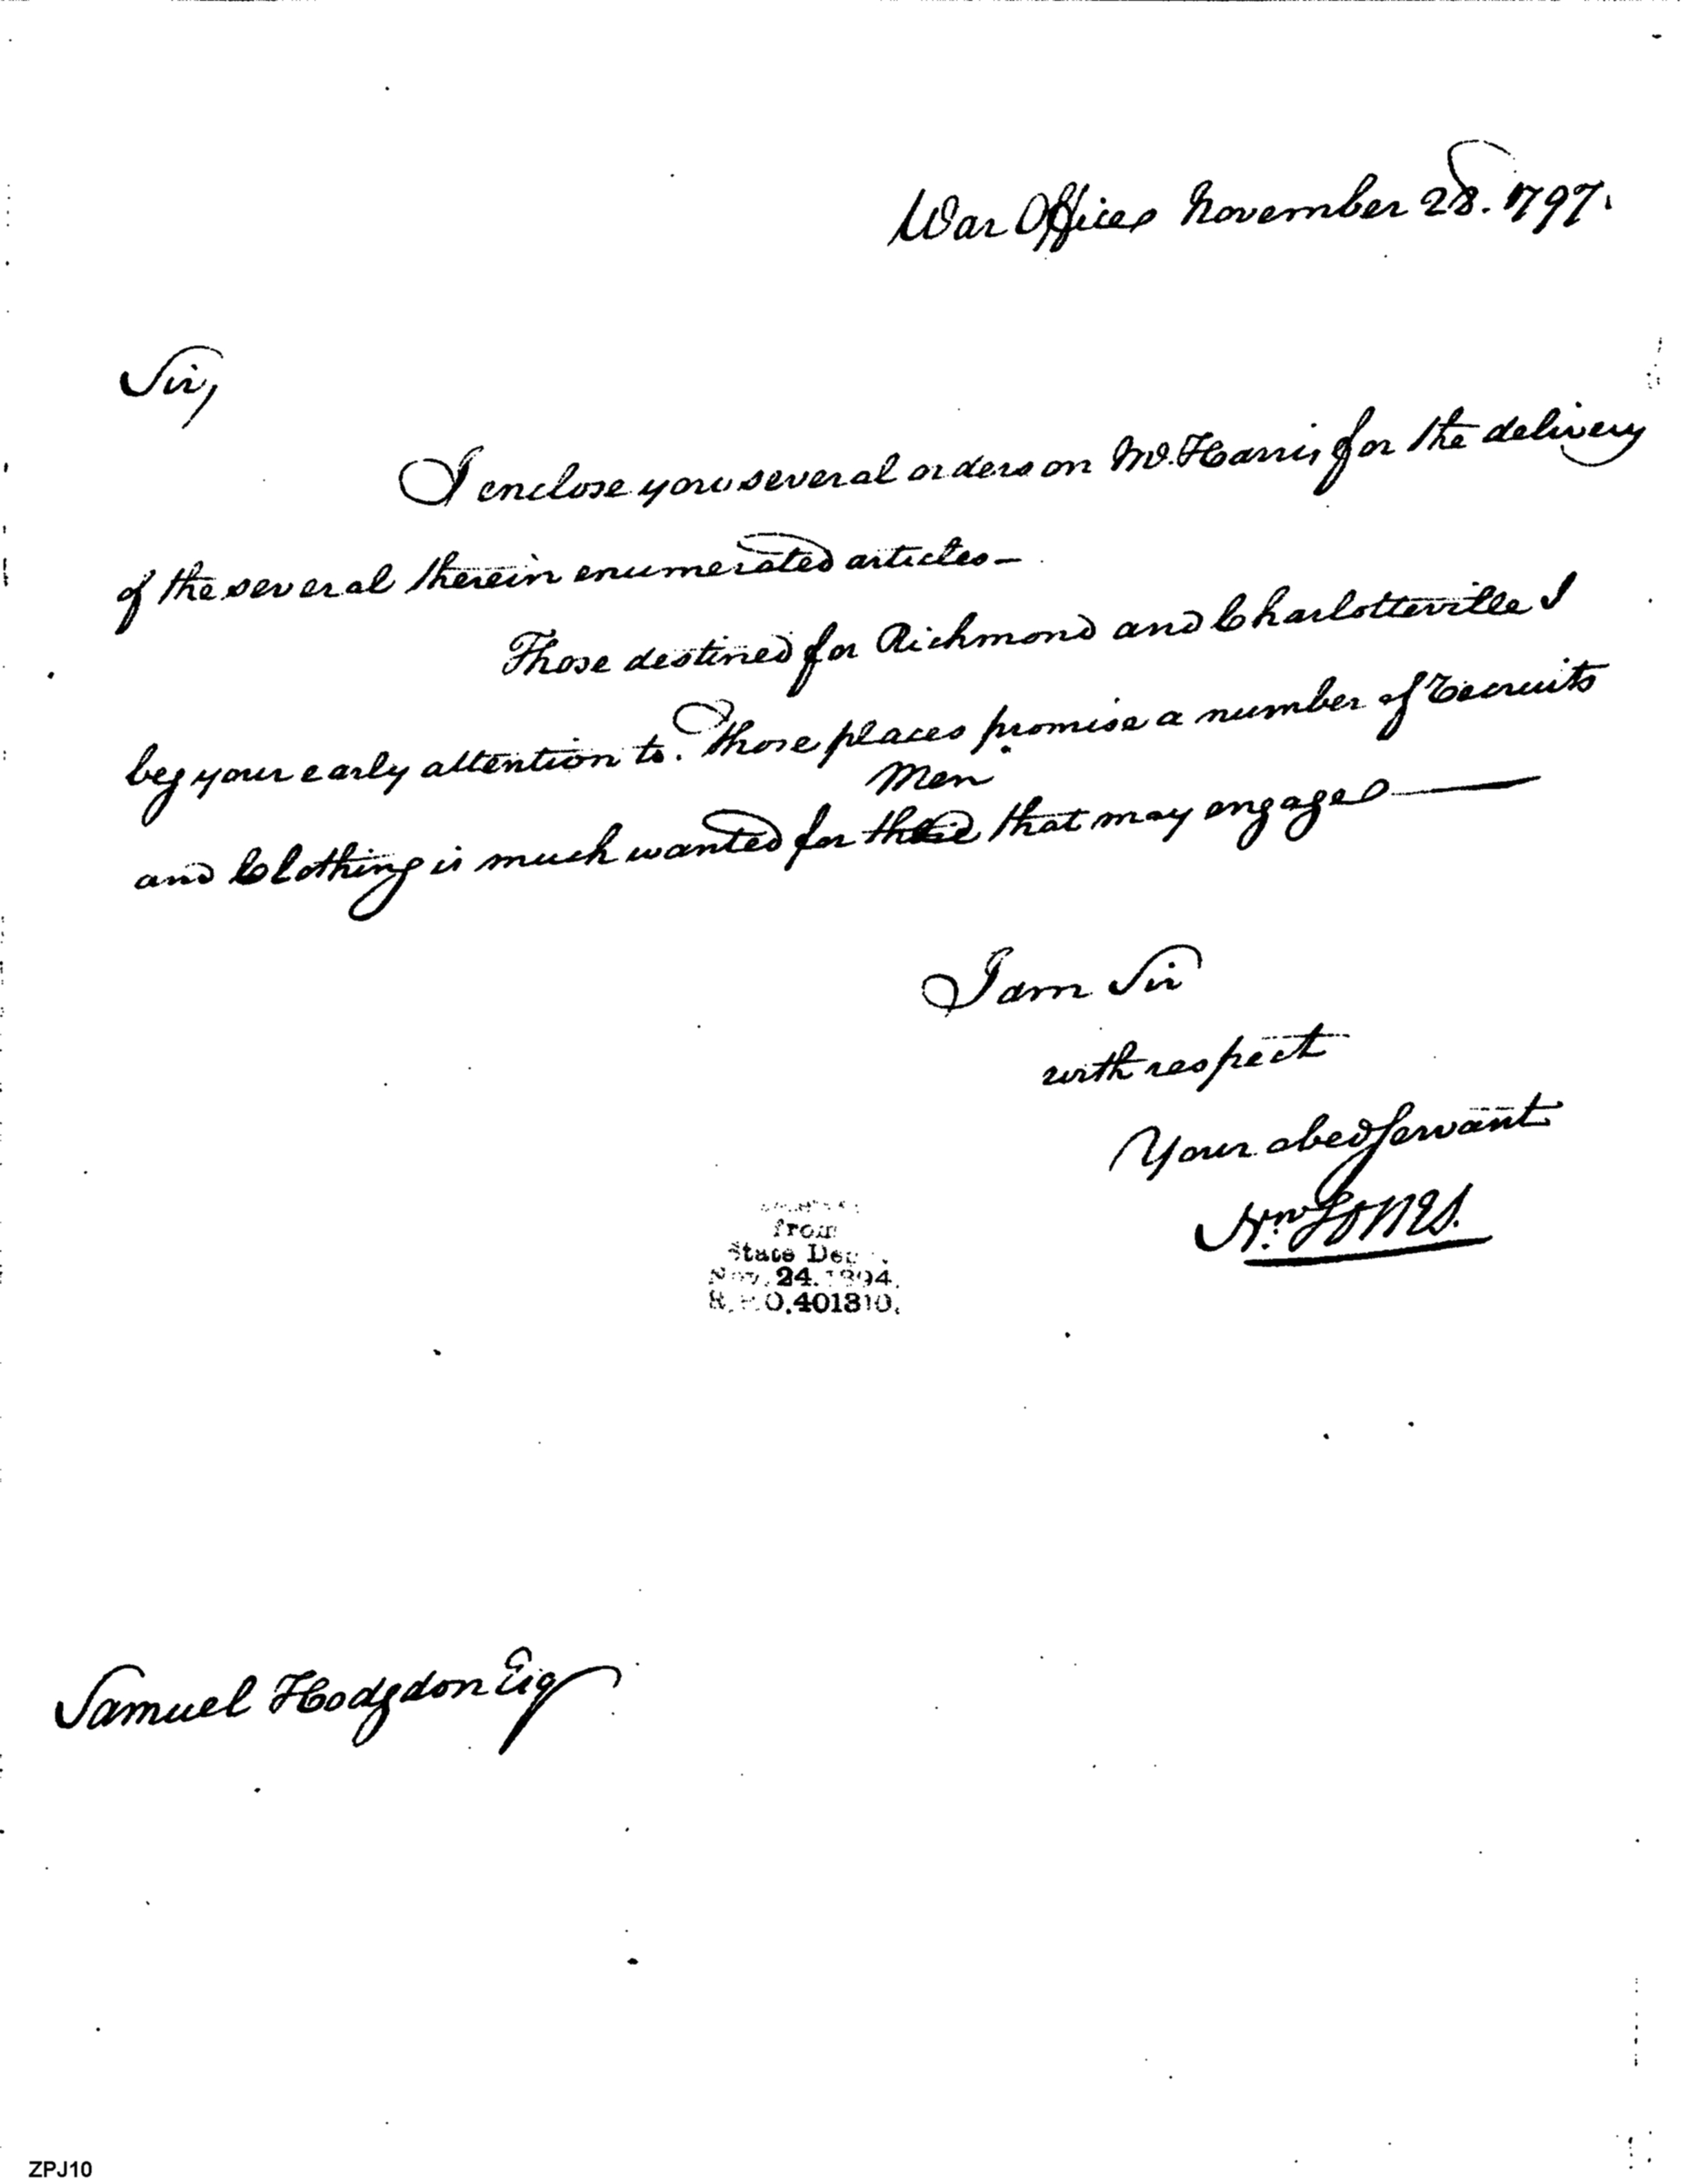 War Office November 28. 1797.
Sir,
I enclose you several orders on Mr. Harris for the delivery
of the several therein enumerated articles—
Those destined for Richmond and Charlotteville I
beg your early attention to. Those places promise a number of recruits
Men
and Clothing is much wanted for that may engage—
I am Sir
with respect
Your obed Servant
Wm Jones.
from
State Dep
Nov. 24. 1894.
R. O. 401810.
Samuel Hodgdon Esq
ZPJ10